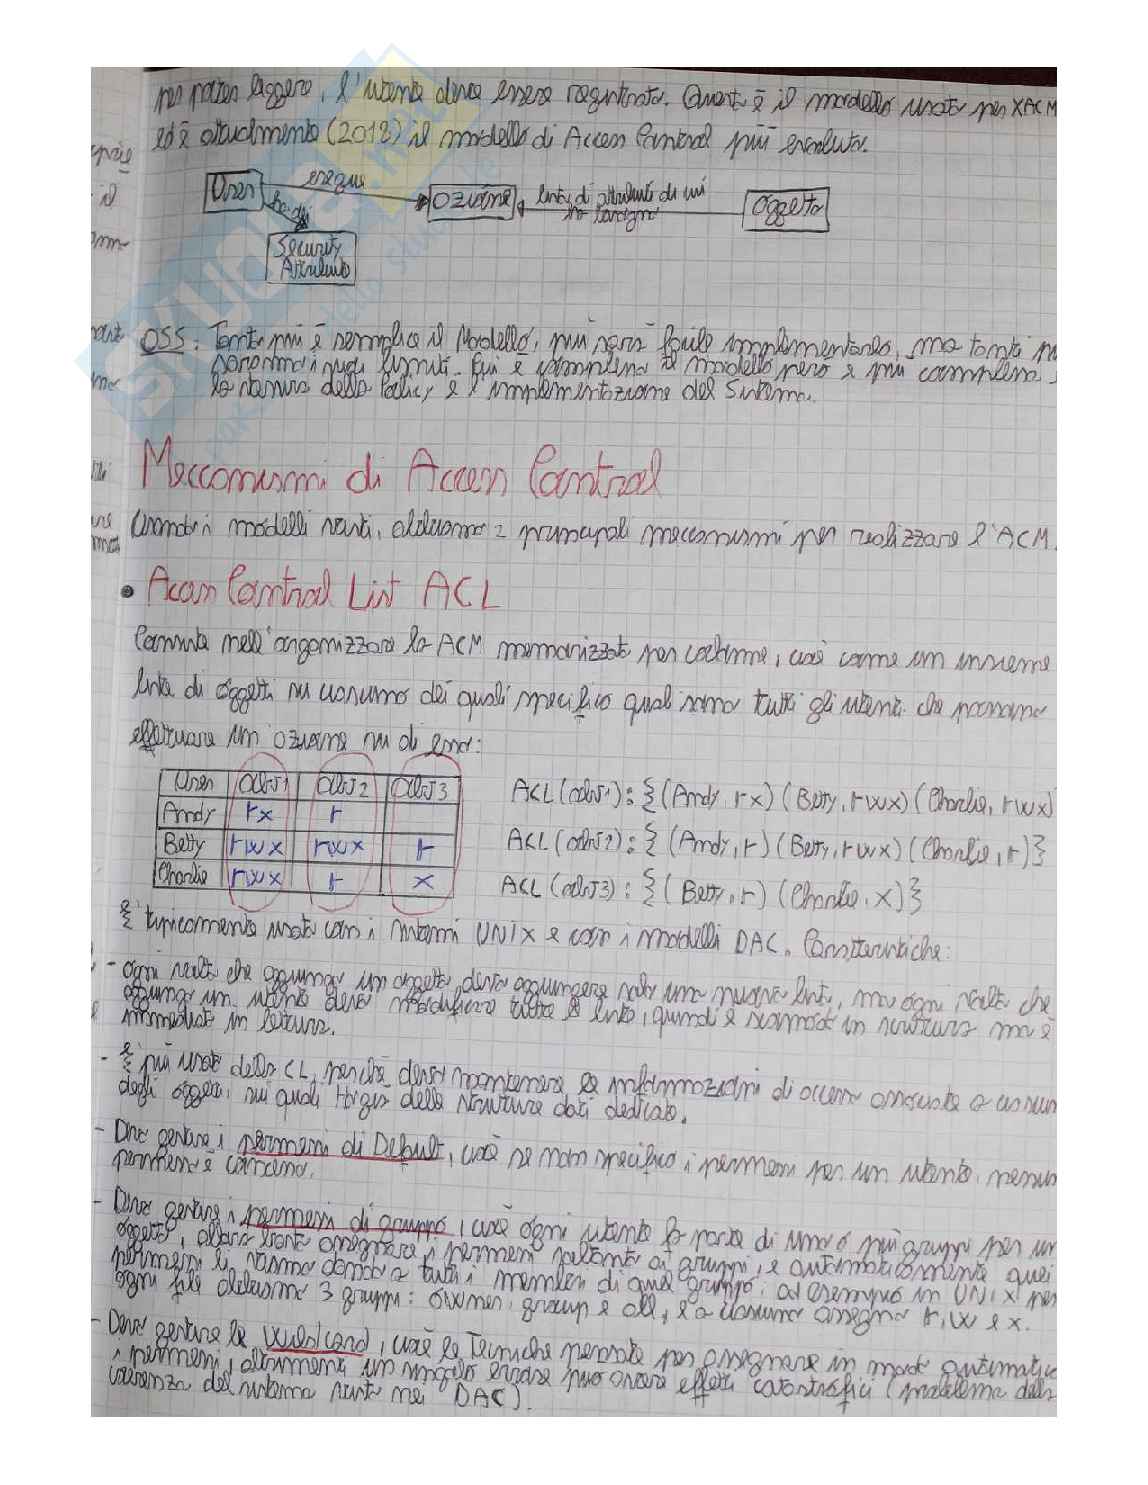 per poter leggere, l'utente deve essere registrato. Questo è il modello usato per XACM
ed è attualmente (2018) il modello di Access Control più evoluto.
User
esegue
azione
lista di attributi di cui
ha bisogno
Oggetto
ha dei
Security
Attribute
OSS: Tanto più è semplice il Modello, più sarà facile implementarlo, ma tanti più
saranno i suoi limiti. Più è complesso il modello però e più complessa
la stesura della Policy e l'implementazione del Sistema.
Meccanismi di Access Control
Usando i modelli visti, abbiamo 2 principali meccanismi per realizzare l'ACM.
• Access Control List ACL
Consiste nell'organizzare la ACM memorizzata per colonne, cioè come un insieme
lista di oggetti su ciascuno dei quali specifico quali sono tutti gli utenti che possono
effettuare un azione su di esso:
User Obj1 Obj2 Obj3
Andy rx r
Betty rwx rwx r
Charlie rwx r x
ACL(obj1): {(Andy, rx) (Betty, rwx) (Charlie, rwx)
ACL(obj2): {(Andy, r) (Betty, rwx) (Charlie, r)}
ACL(obj3): {(Betty, r) (Charlie, x)}
E' tipicamente usato con i sistemi UNIX e con i modelli DAC. Caratteristiche:
- ogni volta che aggiungo un oggetto devo aggiungere solo una nuova lista, ma ogni volta che
aggiungo un utente devo modificare tutte le liste, quindi è scomodo in scrittura ma è
immediato in lettura.
- E' più usato della CL, perché devo mantenere le informazioni di accesso associate a ciascun
degli oggetti, sui quali ho già delle strutture dati dedicate.
- Deve gestire i permessi di Default, cioè se non specifico i permessi per un utente, nessun
permesso è concesso.
- Deve gestire i permessi di gruppo, cioè ogni utente fa parte di uno o più gruppi per un
oggetto, allora basta assegnare i permessi soltanto ai gruppi, e automaticamente quei
permessi si vanno a tutti i membri di quel gruppo; ad esempio in UNIX per
ogni file abbiamo 3 gruppi: owner, group e all, e a ciascuno assegna r, w e x.
- Deve gestire le Wildcard, cioè le tecniche pensate per assegnare in modo automatico
i permessi, altrimenti un singolo errore può avere effetti catastrofici (problema della
coerenza del sistema visto nei DAC).